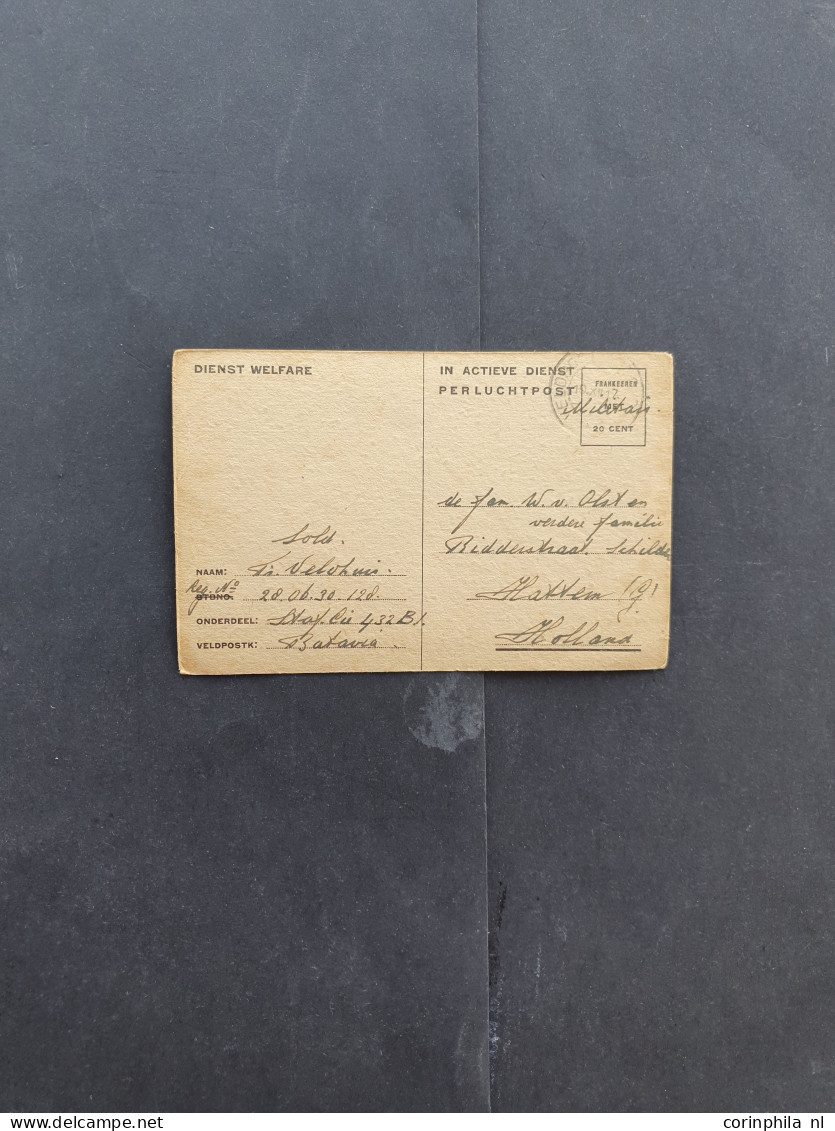 DIENST WELFARE
Sold.
NAAM: Veldhuis.
Reg. No
BTBNO. 28.06.30.128.
ONDERDEEL: Staf. Cie 432 B.I.
VELDPOSTK: Batavia.
IN ACTIEVE DIENST
PER LUCHTPOST
FRANKEEREN
MET
20 CENT
Militair.
de fam. W. v. Olst en
verdere familie
Ridderstraat. Schilde
Hattem (G)
Holland
corinphila nl